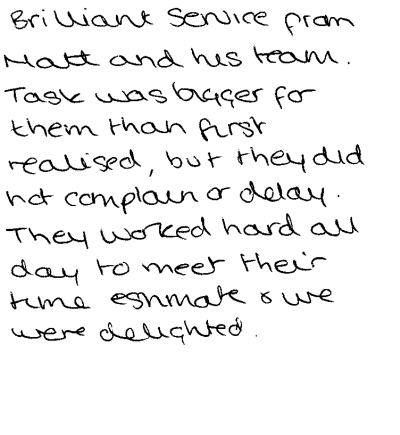 Brilliant Service from
Matt and his team.
Task was bigger for
them than first
realised, but they did
not complain or delay.
They worked hard all
day to meet their
time estimate & we
were delighted.